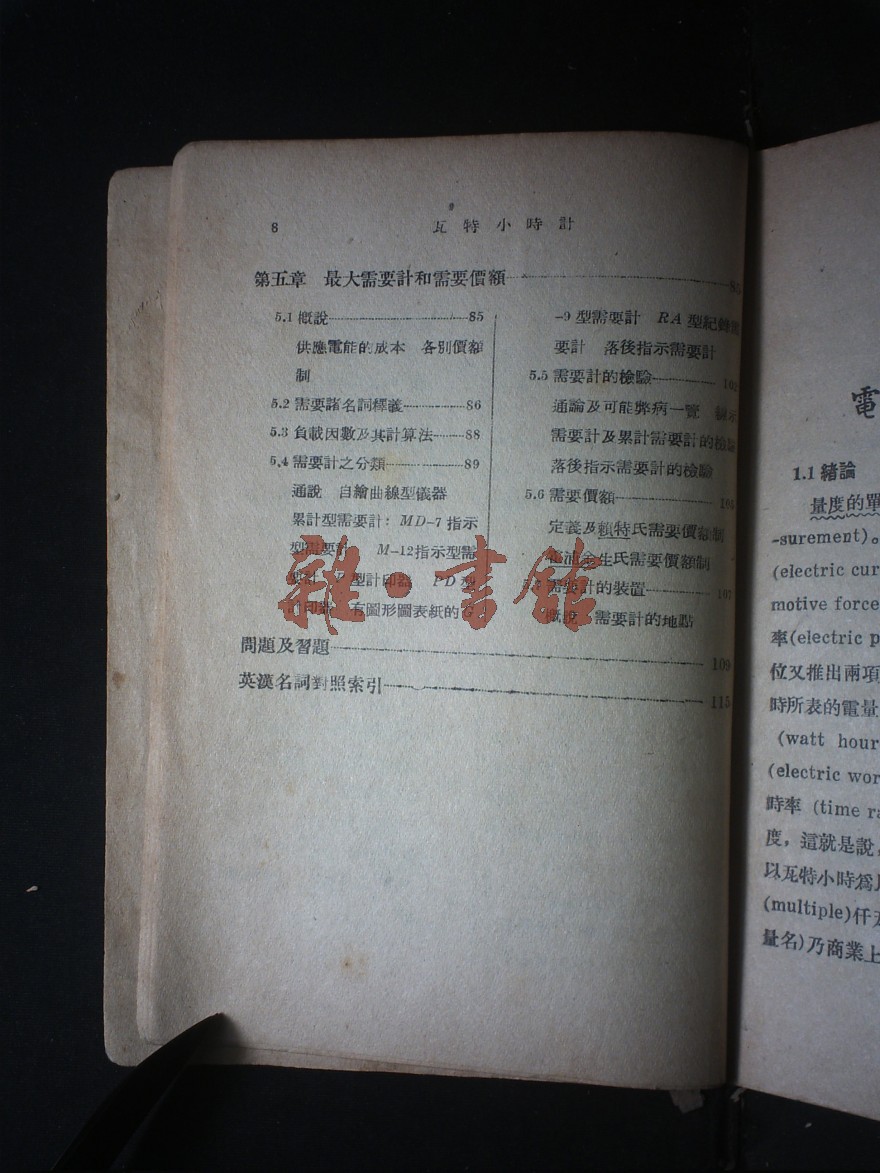 8 瓦特小時計
第五章 最大需要計和需要價額 85
5.1 概說 85
供應電能的成本 各別價額
制
5.2 需要諸名詞標義 86
5.3 負載因數及其計算法 88
5.4 需要計之分類 89
通說 自繪曲線型儀器
累計型需要計：MD-7 指示
型需要計 M-12指示型需
要計 型計印器 PD型
計印器 有圖形圖表紙的G
-9 型需要計 RA 型紀錄需
要計 落後指示需要計
5.5 需要計的檢驗 102
通論及可能弊病一覽 指示
需要計及累計需要計的檢驗
落後指示需要計的檢驗
5.6 需要價額
定義及賴特氏需要價額制
金生氏需要價額制
需要計的裝置 107
概說 需要計的地點
問題及習題 109
英漢名詞對照索引 115
雜·書館
電
1.1 緒論
量度的單
-surement)。
(electric cur
motive force
率(electric p
位又推出兩項
時所表的電量
(watt hour
(electric wor
時率 (time ra
度，這就是說，
以瓦特小時爲
(multiple)仟
量名)乃商業上